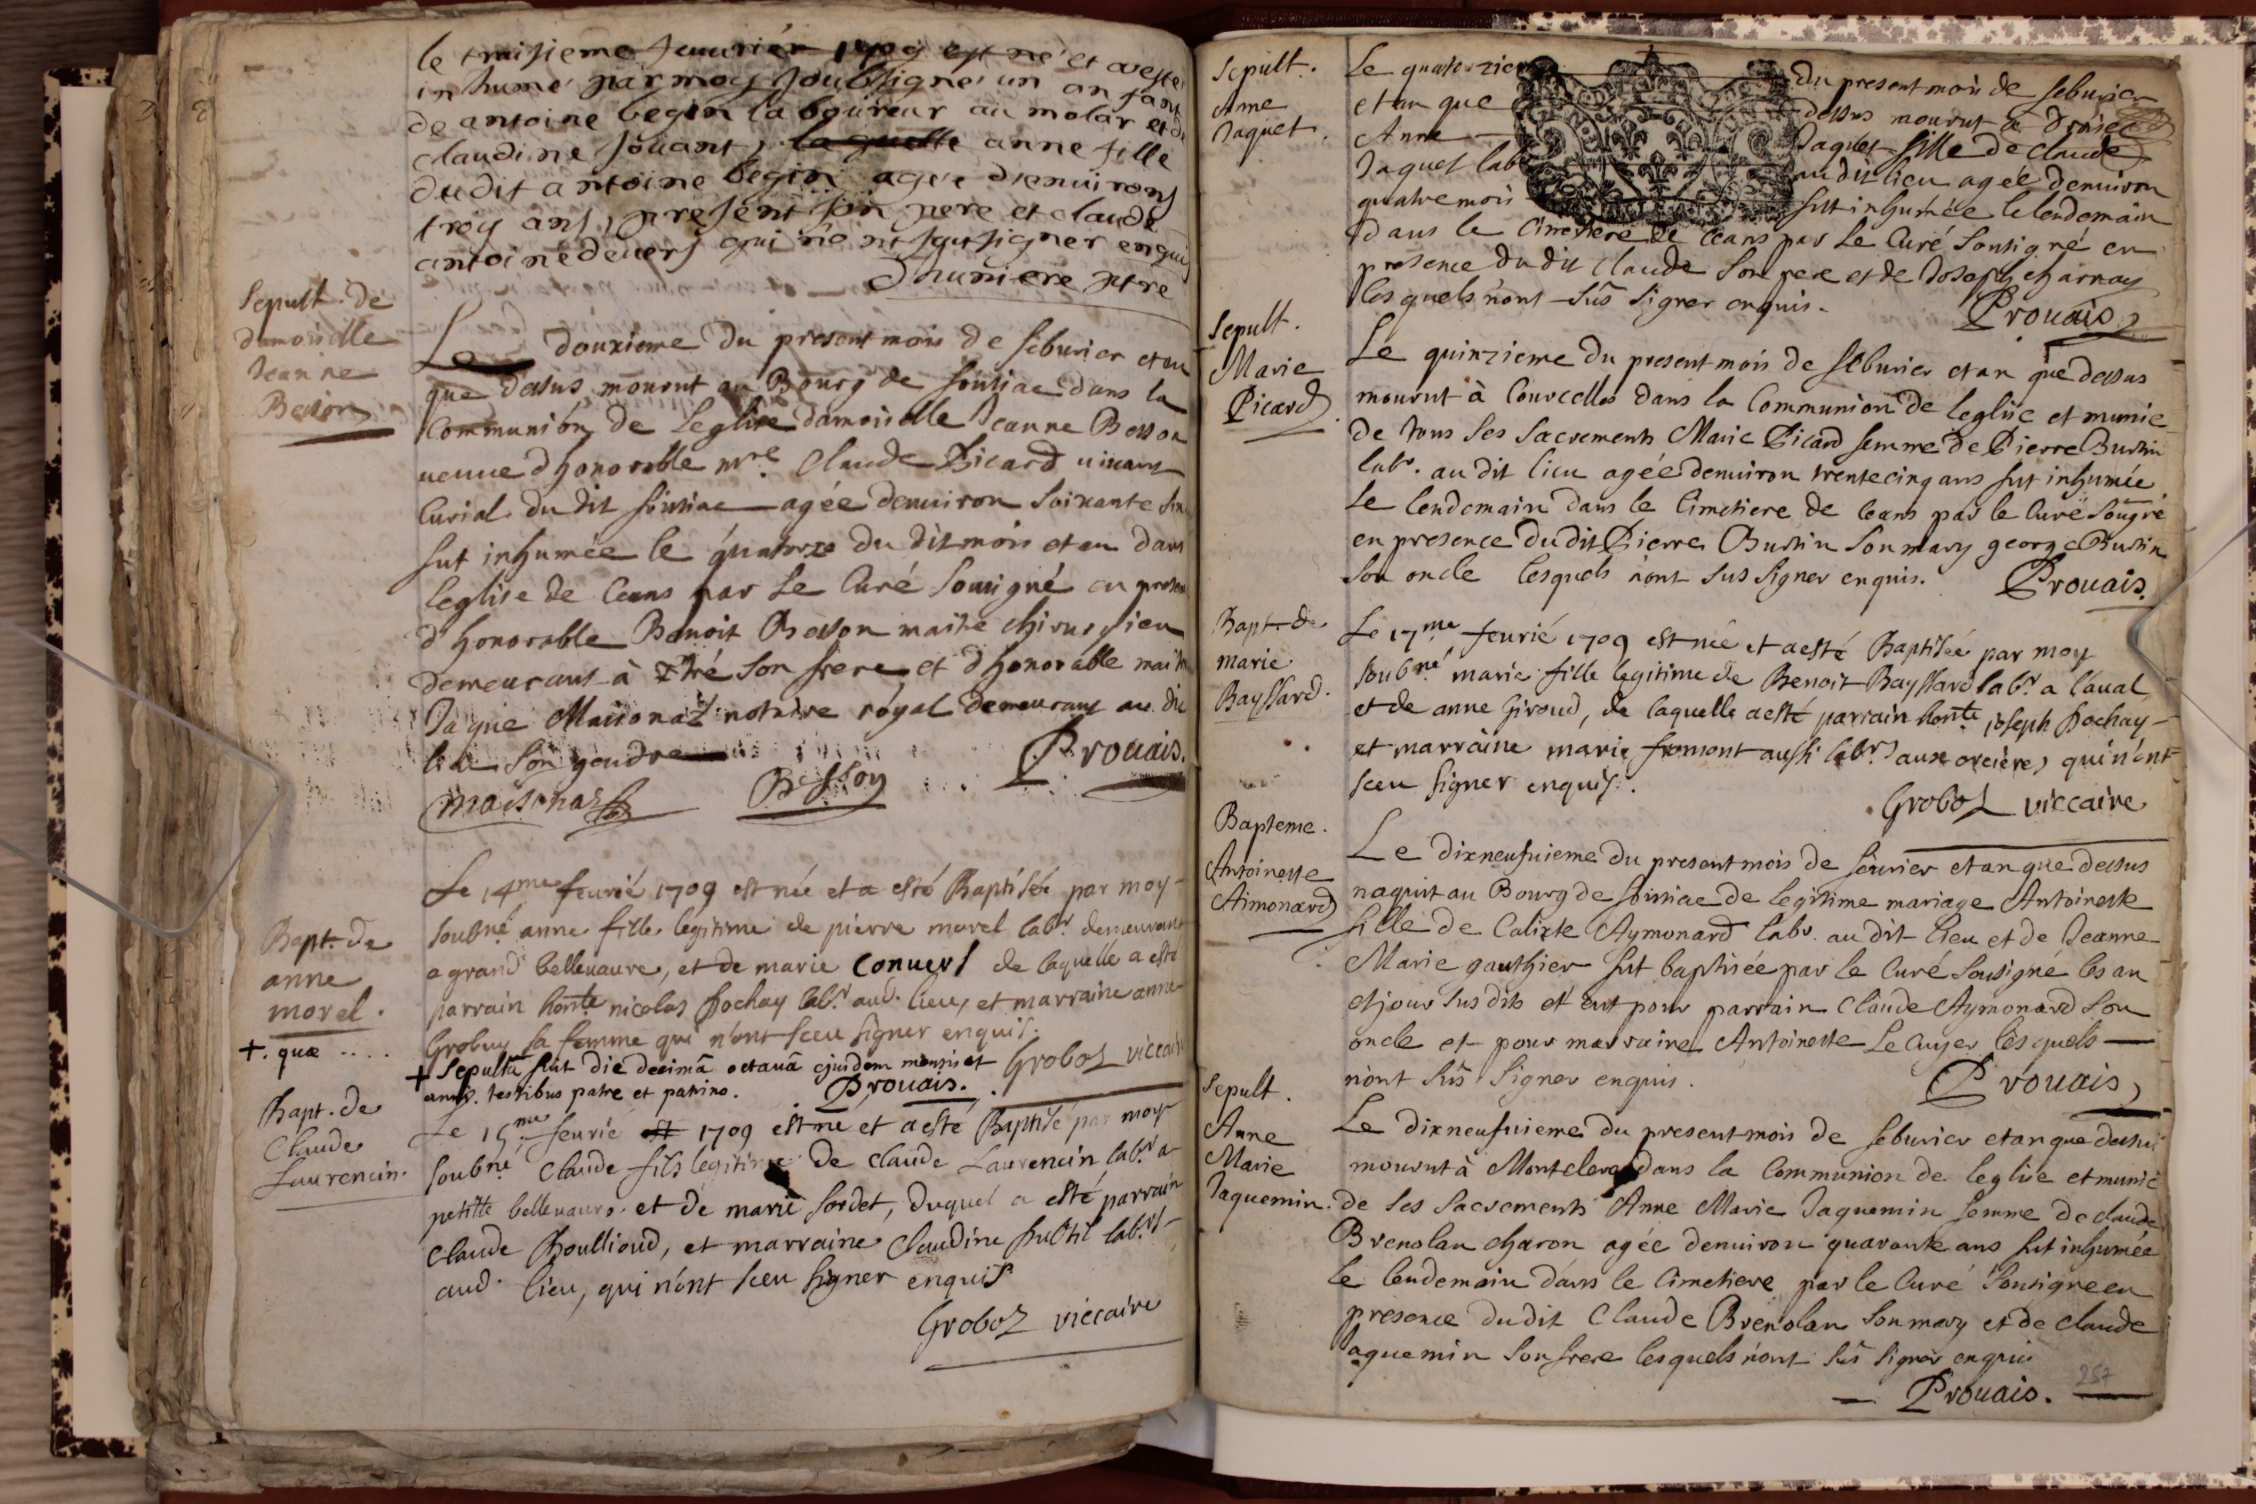 le troisieme Januier 1709 est né et a esté
inhumé par moy soubsigné un anfant
de antoine begin laboureur au molar et de
claudine Jouant, la quelle anne fille
dudit antoine begin agée d'enuirons
troy ans, present son pere et claude
antoine deuers qui n'ont sçu signer enquis
Dhumiere ptre
Sepult. de
damoiselle
Jeanne
Besson
Le douxieme du present mois de feburier et an
que dessus mourut au Bourg de sousiac dans la
Communion de Leglise damoiselle Jeanne Besson
ueuue d'honorable mre Claude Picard uiuant
Curial du dit sousiac agée denuiron soixante
fut inhumée le quatorze du dit mois et an dans
leglise de Ceans par Le Curé sousigné en presen
d'honorable Benoit Besson maitre chirurgien
demeurant à son frere et d'honorable maitre
Jaque Maisonaz notaire royal demeurant au dit
lieu son gendre
Prouais.
maisonaz
Besson
Bapt. de
anne
morel.
Le 14me feurié 1709 est née et a esté Baptisée par moy
soubné anne fille legitime de pierre morel labr demeurant
a grand belleuaure, et de marie Conuert de laquelle a esté
parrain honte nicolas Pochay labr aud. lieu, et marraine anne
Grobuy sa femme qui n'ont sceu signer enquis.
Groboz viccaire
+. quæ ....
+ Sepultā fuit die decimā octauā ejusdem mensis et
anni. testibus patre et patrino. Prouais.
Bapt. de
Claude
Laurencin.
Le 15me feurié est 1709 est né et a esté Baptisé par moy
soubné claude fils legitime de claude Laurencin labr a
petitte belleuaure et de marie sordet, duquel a esté parrain
claude Boullioud, et marraine Claudine subtil labrs
aud. lieu, qui n'ont sceu signer enquis
Groboz viccaire
Sepult.
Anne
Jaquet.
Le quatorzieme du present mois de feburier
et an que dessus mourut à
Anne Jaquet fille de Claude
Jaquet labr au dit lieu agée denuiron
quatre mois fut inhumée le lendemain
dans le Cimetiere de Ceans par Le Curé sousigné en
presence du dit Claude son pere et de Joseph charnay
lesquels n'ont sūs signer enquis.
Prouais
Sepult.
Marie
Picard
Le quinzieme du present mois de feburier et an que dessus
mourut à Courcelles dans la Communion de leglise et munie
de tous ses sacrements Marie Picard femme de Pierre Burtin
labr. au dit lieu agée denuiron trente cinq ans fut inhumée
Le lendemain dans le Cimetiere de ceans par le Curé sougné
en presence dudit Pierre Burtin son mary george Burtin
son oncle lesquels n'ont sus signer enquis.
Prouais.
Bapt. de
marie
Bayssard.
Le 17me feurié 1709 est née et a esté Baptisée par moy
soubné marie fille legitime de Benoit Bayssard labr a laual
et de anne Giroud, de laquelle a esté parrain honte joseph Pochay
et marraine marie fromont aussi labrs aux orcieres qui n'ont
sceu signer enquis.
Groboz viccaire
Bapteme.
Antoinette
Aimonard
Le dixneufuieme du present mois de feurier et an que dessus
naquit au Bourg de sousiac de legitime mariage Antoinette
fille de Calixte Aymonard labr. au dit lieu et de Jeanne
Marie gauthier fut baptisée par le Curé sousigné les an
et jour sus dits et eut pour parrain Claude Aymonard son
oncle et pour marraine Antoinette Lecuyer lesquels
n'ont sūs signer enquis.
Prouais
Sepult.
Anne
Marie
Jaquemin.
Le dixneufuieme du present mois de feburier et an que dessus
mourut à Montclera dans la Communion de leglise et munie
de ses sacrements Anne Marie Jaquemin femme de claude
Brenolan charon agée denuiron quarante ans fut inhumée
le lendemain dans le Cimetiere par le Curé sousigné en
presence du dit Claude Brenolan son mary et de claude
Jaquemin son frere lesquels n'ont sūs signer enquis
Prouais.
257